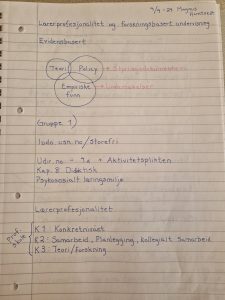 5/9-24 Magnus
Lærerprofesjonalitet og forskningsbasert undervisning
Evidensbasert
Teori Policy → Styringsdokumenter
Empiriske → Undersøkelser
funn
Gruppe 1)
ludo.usn.no/storefri
Udir.no → 9a → Aktivitetsplikten
Kap. 8 Didaktisk
Psykososialt læringsmiljø
Lærerprofesjonalitet
Prof. Skole
K1 Konkretnivået
K2: Samarbeid, Planlegging, Kollegialt Samarbeid
K3: Teori/Forskning